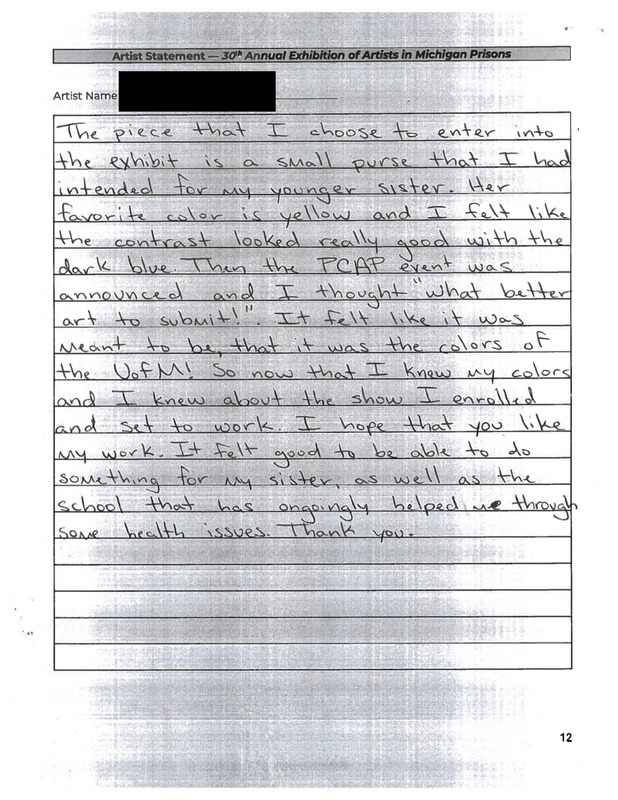 Artist Statement — 30th Annual Exhibition of Artists in Michigan Prisons
Artist Name
The piece that I choose to enter into
the exhibit is a small purse that I had
intended for my younger sister. Her
favorite color is yellow and I felt like
the contrast looked really good with the
dark blue. Then the PCAP event was
announced and I thought "what better
art to submit!". It felt like it was
meant to be, that it was the colors of
the UofM! So now that I knew my colors
and I knew about the show I enrolled
and set to work. I hope that you like
my work. It felt good to be able to do
something for my sister, as well as the
school that has ongoingly helped me through
some health issues. Thank you.
12